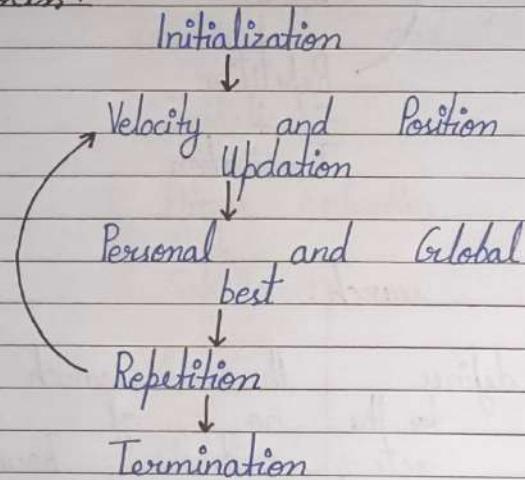 Initialization
Velocity and Position
Updation
Personal and Global
best
Repetition
Termination